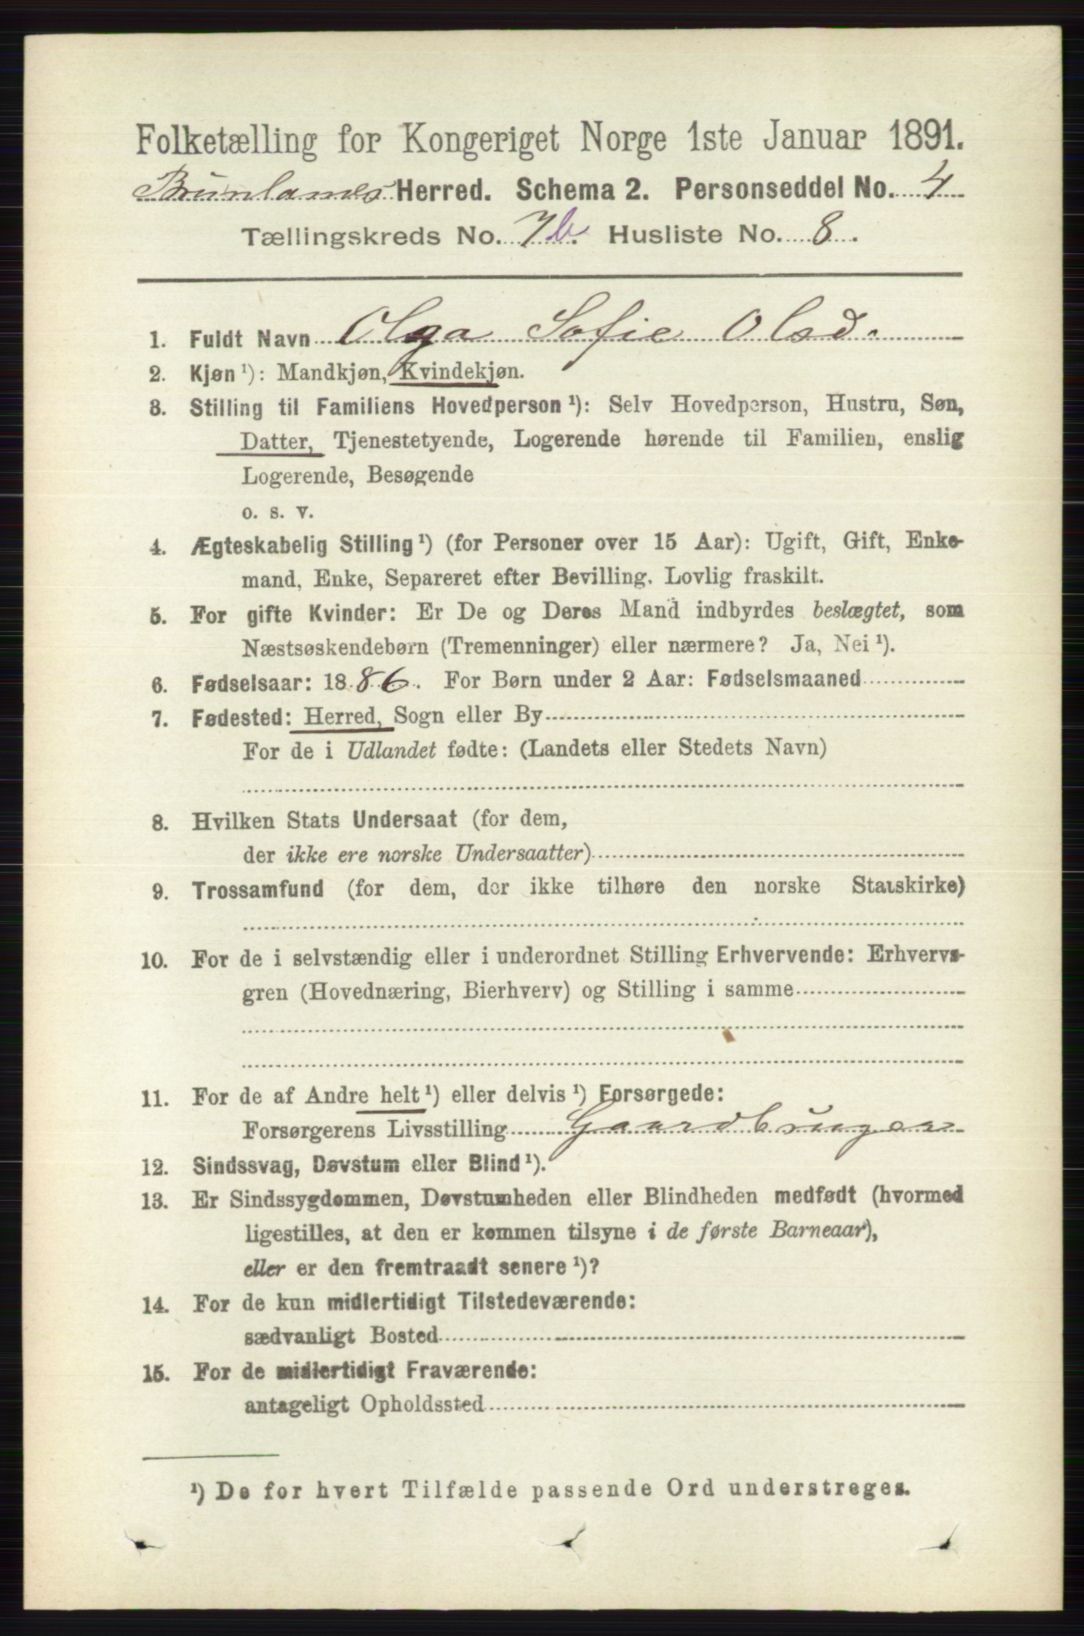 Folketælling for Kongeriget Norge 1ste Januar 1891.
Brunlanes Herred. Schema 2. Personseddel No. 4
Tællingskreds No. 7b. Husliste No. 8.
1. Fuldt Navn Olga Sofie Olsd.
2. Kjøn ¹): Mandkjøn, Kvindekjøn.
3. Stilling til Familiens Hovedperson ¹): Selv Hovedperson, Hustru, Søn,
Datter, Tjenestetyende, Logerende hørende til Familien, enslig
Logerende, Besøgende
o. s. v.
4. Ægteskabelig Stilling ¹) (for Personer over 15 Aar): Ugift, Gift, Enke-
mand, Enke, Separeret efter Bevilling. Lovlig fraskilt.
5. For gifte Kvinder: Er De og Deres Mand indbyrdes beslægtet, som
Næstsøskendebørn (Tremenninger) eller nærmere? Ja, Nei ¹).
6. Fødselsaar: 1886. For Børn under 2 Aar: Fødselsmaaned
7. Fødested: Herred, Sogn eller By
For de i Udlandet fødte: (Landets eller Stedets Navn)
8. Hvilken Stats Undersaat (for dem,
der ikke ere norske Undersaatter)
9. Trossamfund (for dem, der ikke tilhøre den norske Statskirke)
10. For de i selvstændig eller i underordnet Stilling Erhvervende: Erhvervs-
gren (Hovednæring, Bierhverv) og Stilling i samme
11. For de af Andre helt ¹) eller delvis ¹) Forsørgede:
Forsørgerens Livsstilling Gaardbruger
12. Sindssvag, Døvstum eller Blind ¹).
13. Er Sindssygdommen, Døvstumheden eller Blindheden medfødt (hvormed
ligestilles, at den er kommen tilsyne i de første Barneaar),
eller er den fremtraadt senere ¹)?
14. For de kun midlertidigt Tilstedeværende:
sædvanligt Bosted
15. For de midlertidigt Fraværende:
antageligt Opholdssted
¹) De for hvert Tilfælde passende Ord understreges.